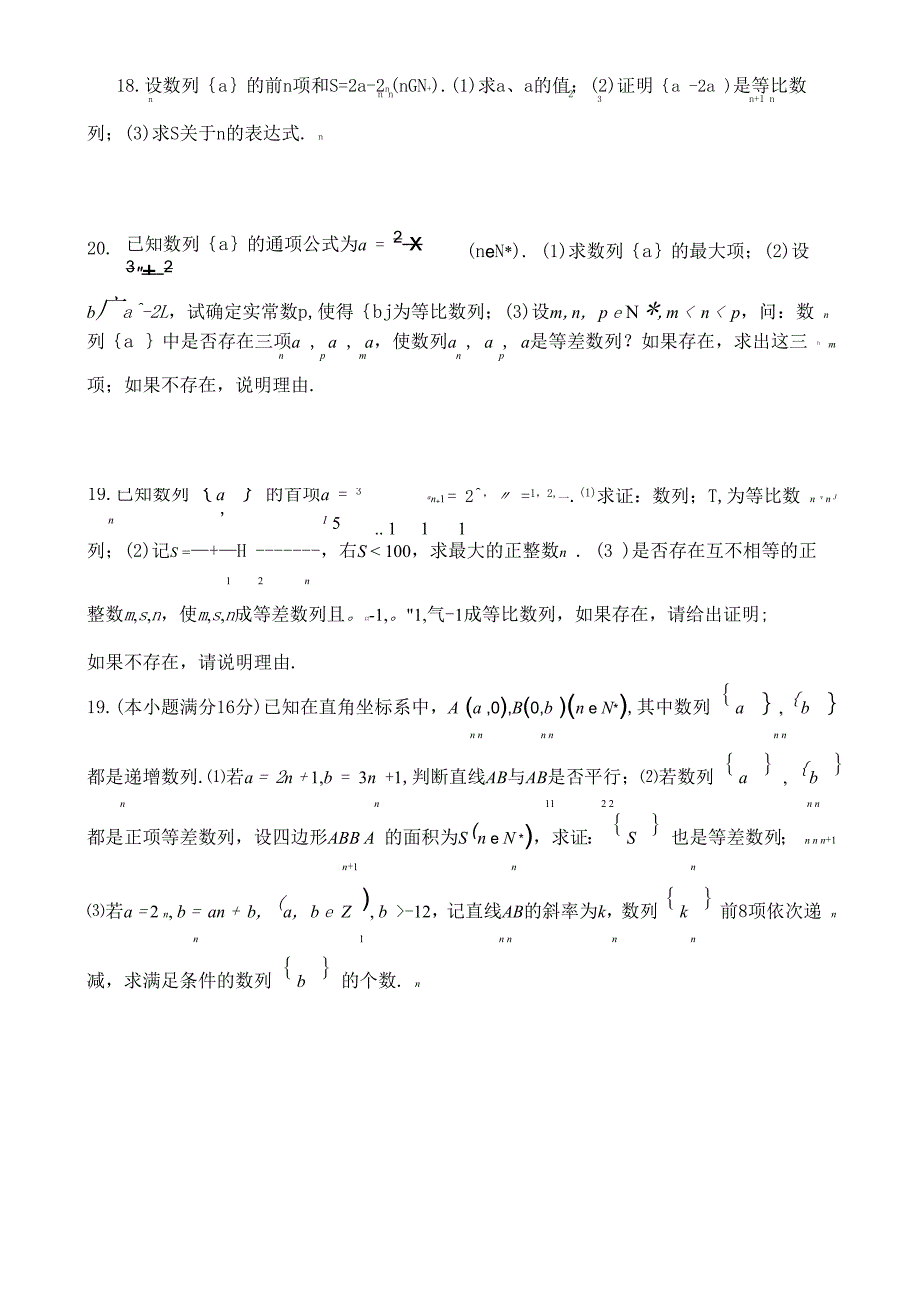 18.设数列{a}的前n项和S=2a-2n(nGN+).(1)求a、a的值;(2)证明{a -2a )是等比数
n n n 2 3 n+1 n
列;(3)求S关于n的表达式. n
20. 已知数列{a}的通项公式为a = 2 X (neN*). (1)求数列{a}的最大项;(2)设
3n+ 2
b广a^-2L,试确定实常数p,使得{bj为等比数列;(3)设m,n, p e N *,m < n < p,问:数 n
列{a }中是否存在三项a , a , a,使数列a , a , a是等差数列?如果存在,求出这三 n m
n p m n p
项;如果不存在,说明理由.
19.已知数列 {a } 的首项a = 3 an+1= 2^, 〃 =1, 2,—.⑴求证:数列;T,为等比数 n Y n J
n , 1 5 .. 1 1 1
列;(2)记S =—+—H -------,右S < 100,求最大的正整数n . (3 )是否存在互不相等的正
1 2 n
整数m,s,n,使m,s,n成等差数列且。n-1,。"1,气-1成等比数列,如果存在,请给出证明;
如果不存在,请说明理由.
19.(本小题满分16分)已知在直角坐标系中,A (a ,0),B(0,b )(n e N*),其中数列 {a }, {b }
n n n n n n
都是递增数列.⑴若a = 2n +1,b = 3n +1,判断直线AB与AB是否平行;⑵若数列 {a } , {b }
n n 11 2 2 n n
都是正项等差数列,设四边形ABB A 的面积为S (n e N *),求证: {S } 也是等差数列; n n n n+1
n+1 n n
⑶若a =2 n, b = an + b, (a, b e Z ), b >-12,记直线AB的斜率为k,数列 {k } 前8项依次递 n
n 1 n n n n
减,求满足条件的数列 {b } 的个数. n